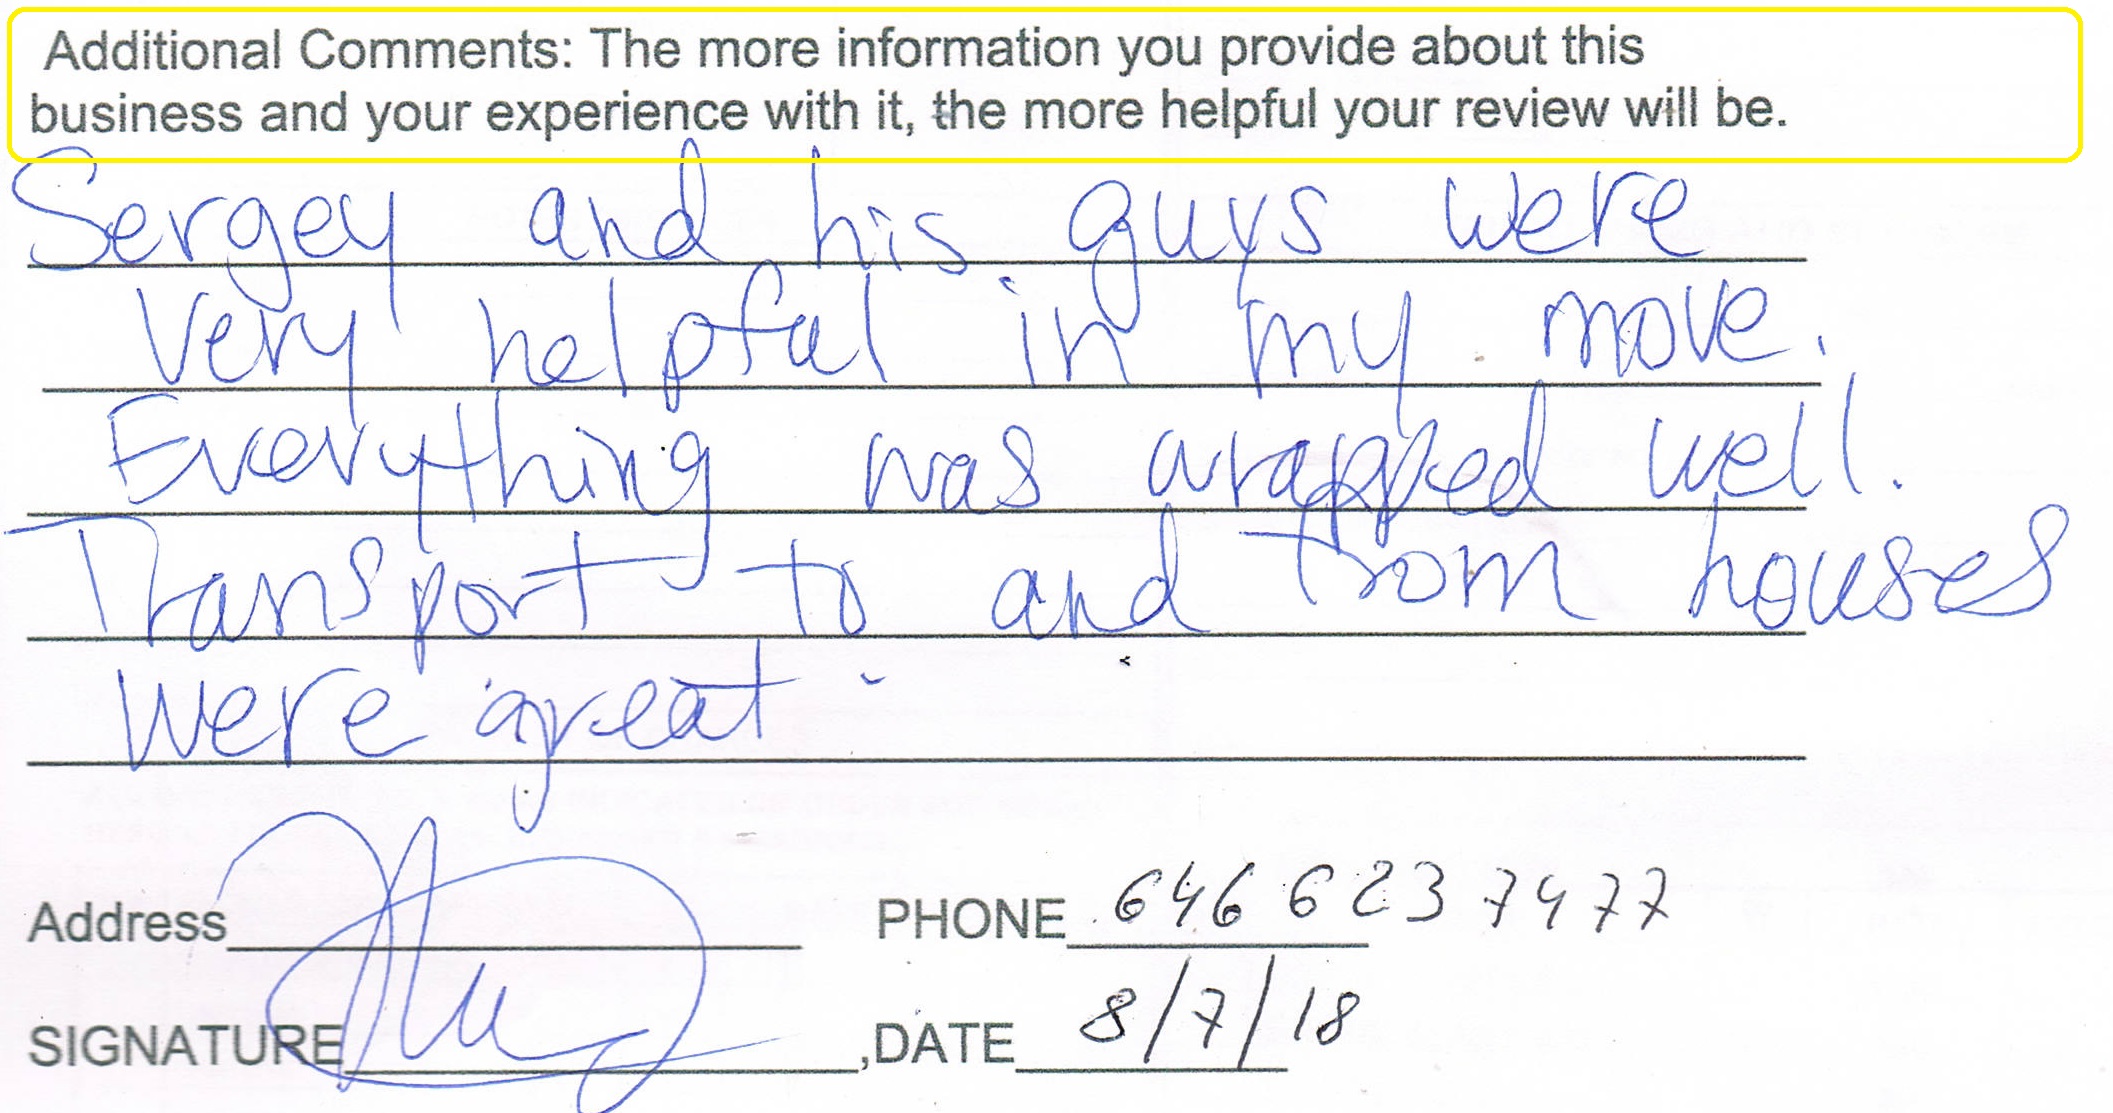 Additional Comments: The more information you provide about this
business and your experience with it, the more helpful your review will be.
Sergey and his guys were
very helpful in my move.
Everything was wrapped well.
Transport to and from houses
were great.
Address PHONE 646 623 7477
SIGNATURE ,DATE 8/7/18